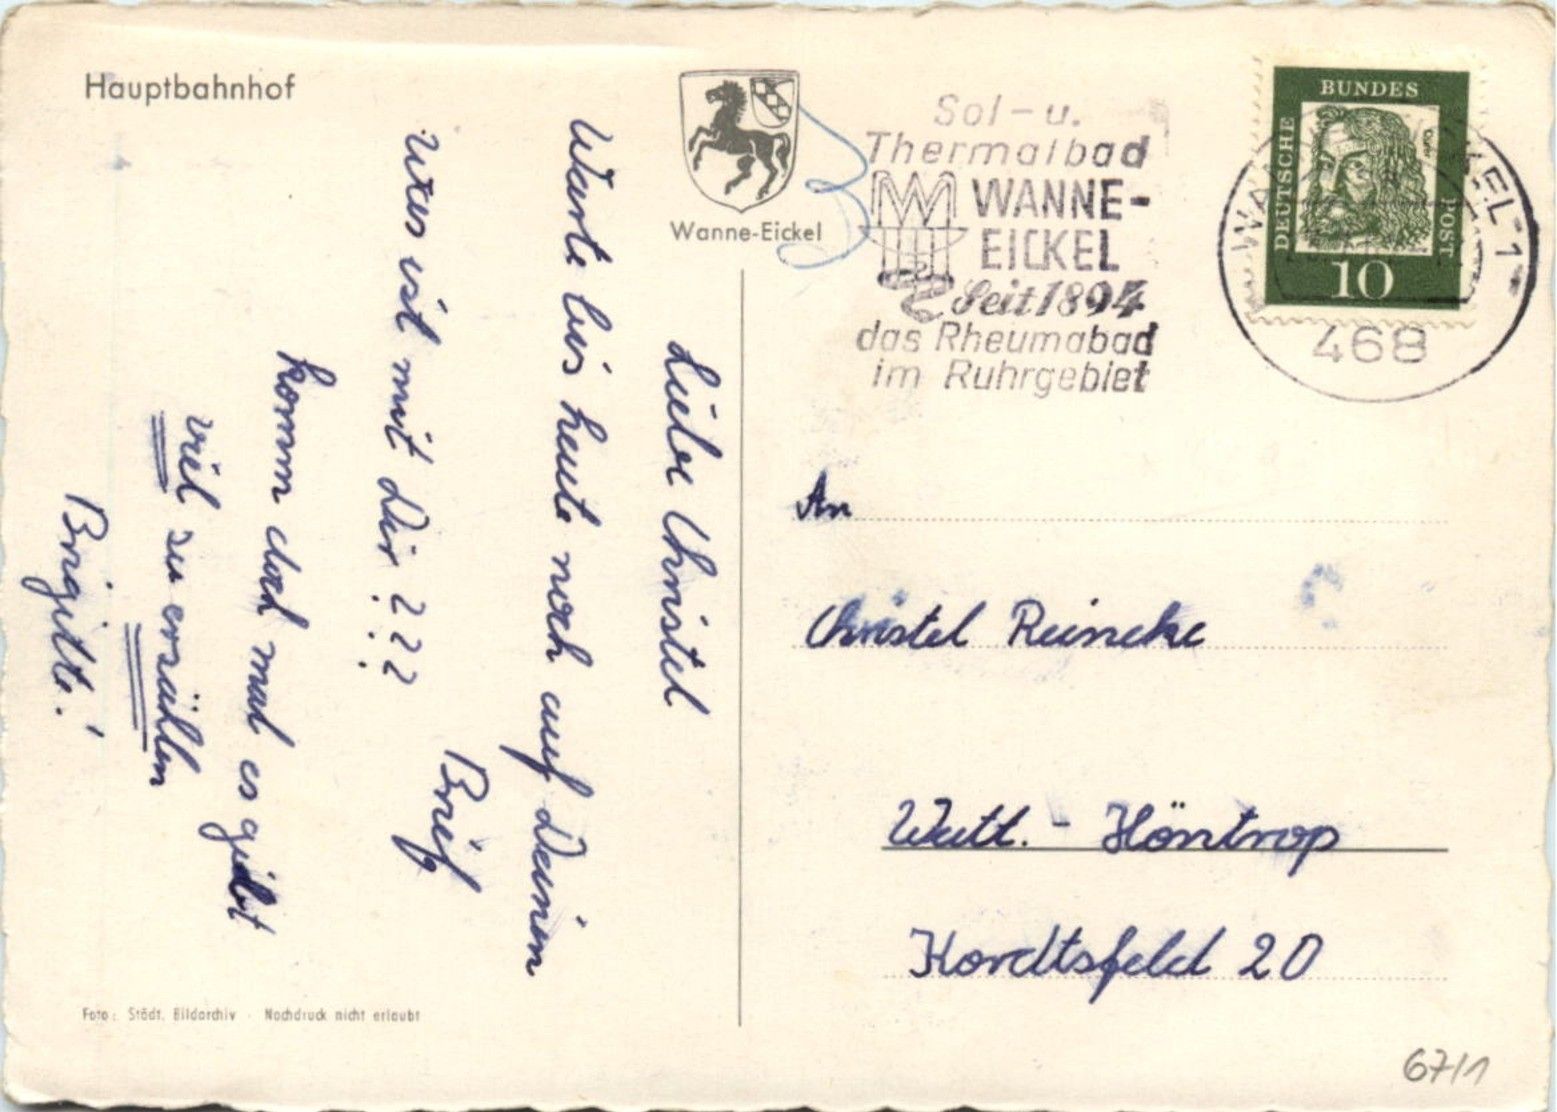 Hauptbahnhof
Wanne-Eickel
Sol- u.
Thermalbad
WANNE-
EICKEL
Seit 1894
das Rheumabad
im Ruhrgebiet
DEUTSCHE
BUNDES
POST
10
EL 1
468
Liebe Christel
Warte bis heute noch auf Deinen
Brief
Was ist mit Dir???
Komm doch mal es giebt
viel zu erzählen
Brigitte!
An
Christel Reincke
Watt.- Höntrop
Kordtsfeld 20
Foto: Städt. Bildarchiv · Nachdruck nicht erlaubt
67/1